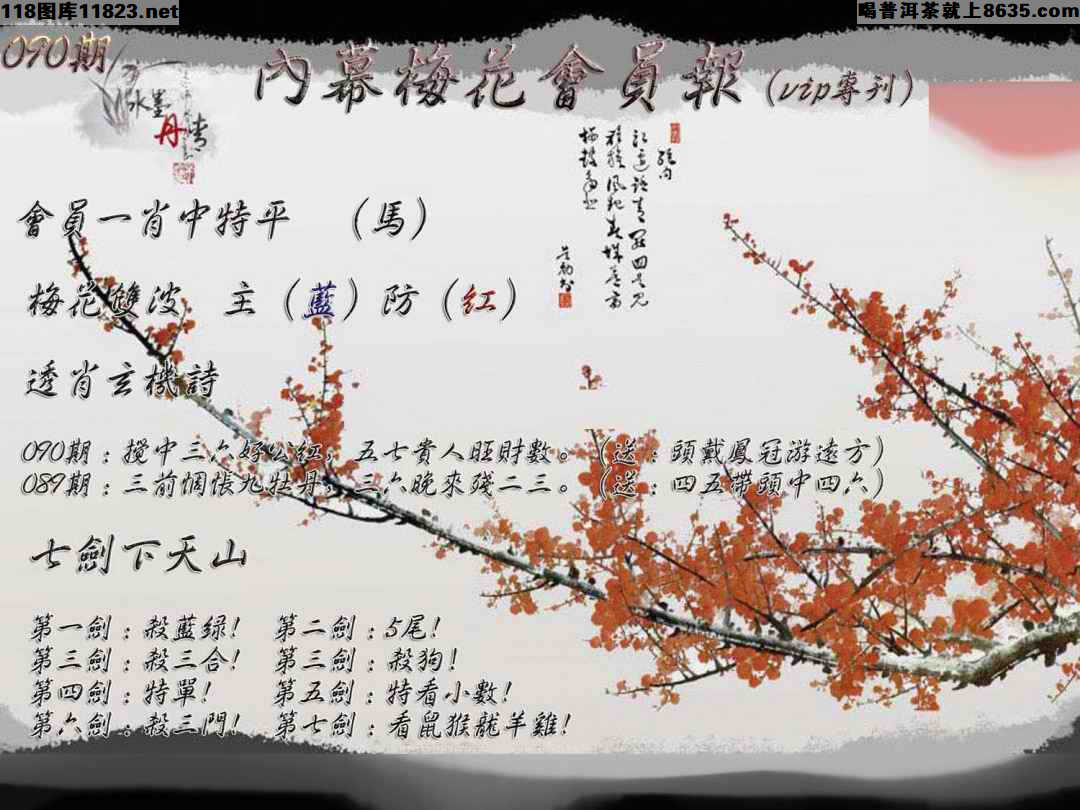 118图库11823.net
喝普洱茶就上8635.com
090期
內幕梅花會員報(vip專刊)
水墨丹青
會員一肖中特平 （馬）
梅花雙波 主（藍）防（红）
透肖玄機詩
090期：攪中三六好公红，五七貴人旺財數。（送：頭戴鳳冠游遠方）
089期：三前惆悵九牡丹，三六晚來殘二三。（送：四五帶頭中四六）
七劍下天山
第一劍：殺藍绿！ 第二劍：5尾！
第三劍：殺三合！ 第三劍：殺狗！
第四劍：特單！ 第五劍：特看小數！
第六劍：殺三門！ 第七劍：看鼠猴龍羊雞！